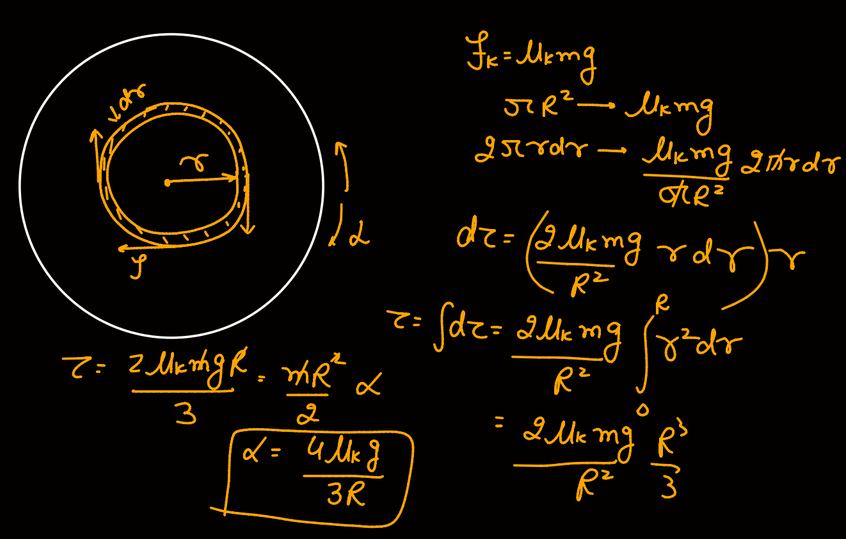 dr
r
f
α
f_k = μ_k mg
πR² → μ_k mg
2πrdr → μ_k mg / πR² 2πrdr
dτ = (2μ_k mg / R² r dr) r
τ = ∫dτ = 2μ_k mg / R² ∫₀ᴿ r²dr
= 2μ_k mg / R² R³ / 3
τ = 2μ_k mgR / 3 = mR² / 2 α
α = 4μ_k g / 3R